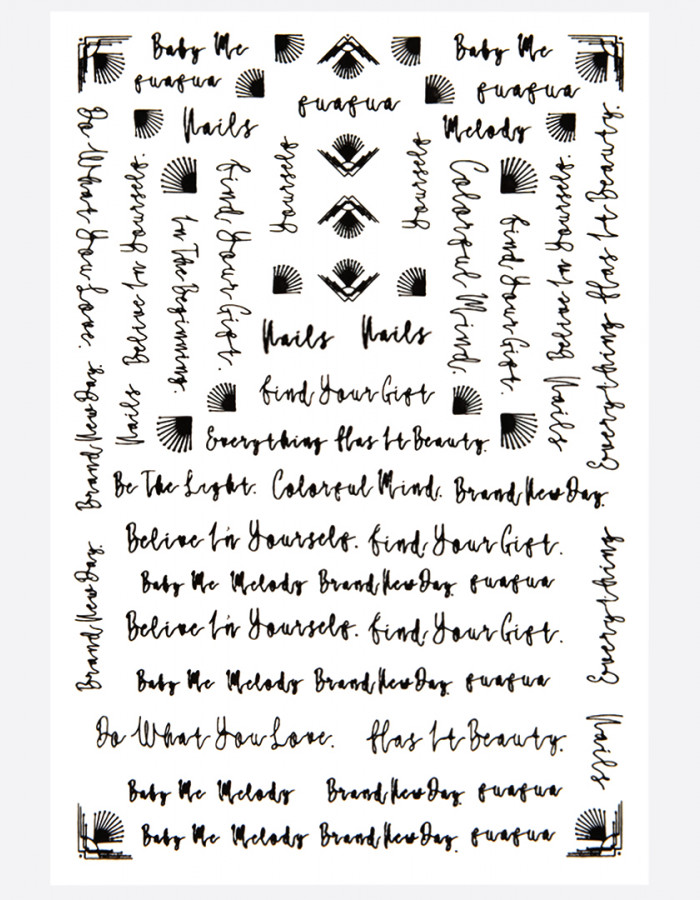 Baby Me
Baby Me
fuafua
fuafua
fuafua
Nails
Melody
Do What You Love.
Brand New Day.
Brand New Day.
Belive In Yourself.
Nails
In The Beginning.
Find Your Gift.
Yourself
Yourself
Colorful Mind.
Find Your Gift.
Belive In Yourself.
Nails
Everything Has It Beauty.
Everything
Nails
Nails Nails
Find Your Gift
Everything Has It Beauty.
Be The Light. Colorful Mind. Brand New Day.
Belive In Yourself. Find Your Gift.
Baby Me Melody Brand New Day fuafua
Belive In Yourself. Find Your Gift.
Baby Me Melody Brand New Day. fuafua
Do What You Love. Has It Beauty.
Baby Me Melody Brand New Day. fuafua
Baby Me Melody Brand New Day. fuafua